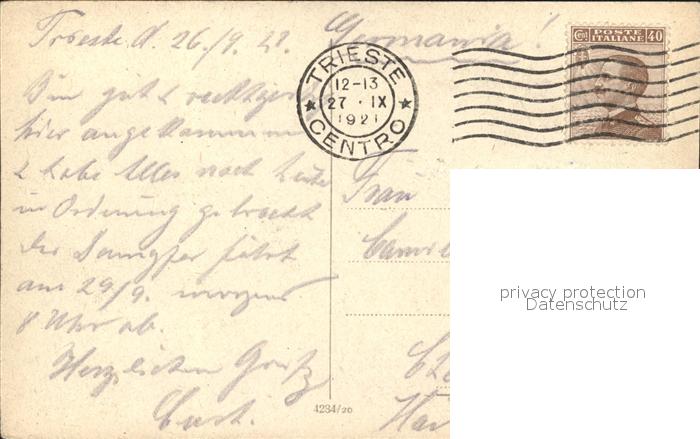 Trieste d. 26./9. 21.
Germania!
POSTE
ITALIANE
40
TRIESTE
12-13
27 · IX
1921
CENTRO
Bin gut & rechtzeitig
hier angekommen
& habe Alles noch heute
in Ordnung gebracht
der Dampfer fährt
am 29/9. morgens
8 Uhr ab.
Herzlichen Gruß
Curt.
Frau
privacy protection
Datenschutz
4234/20